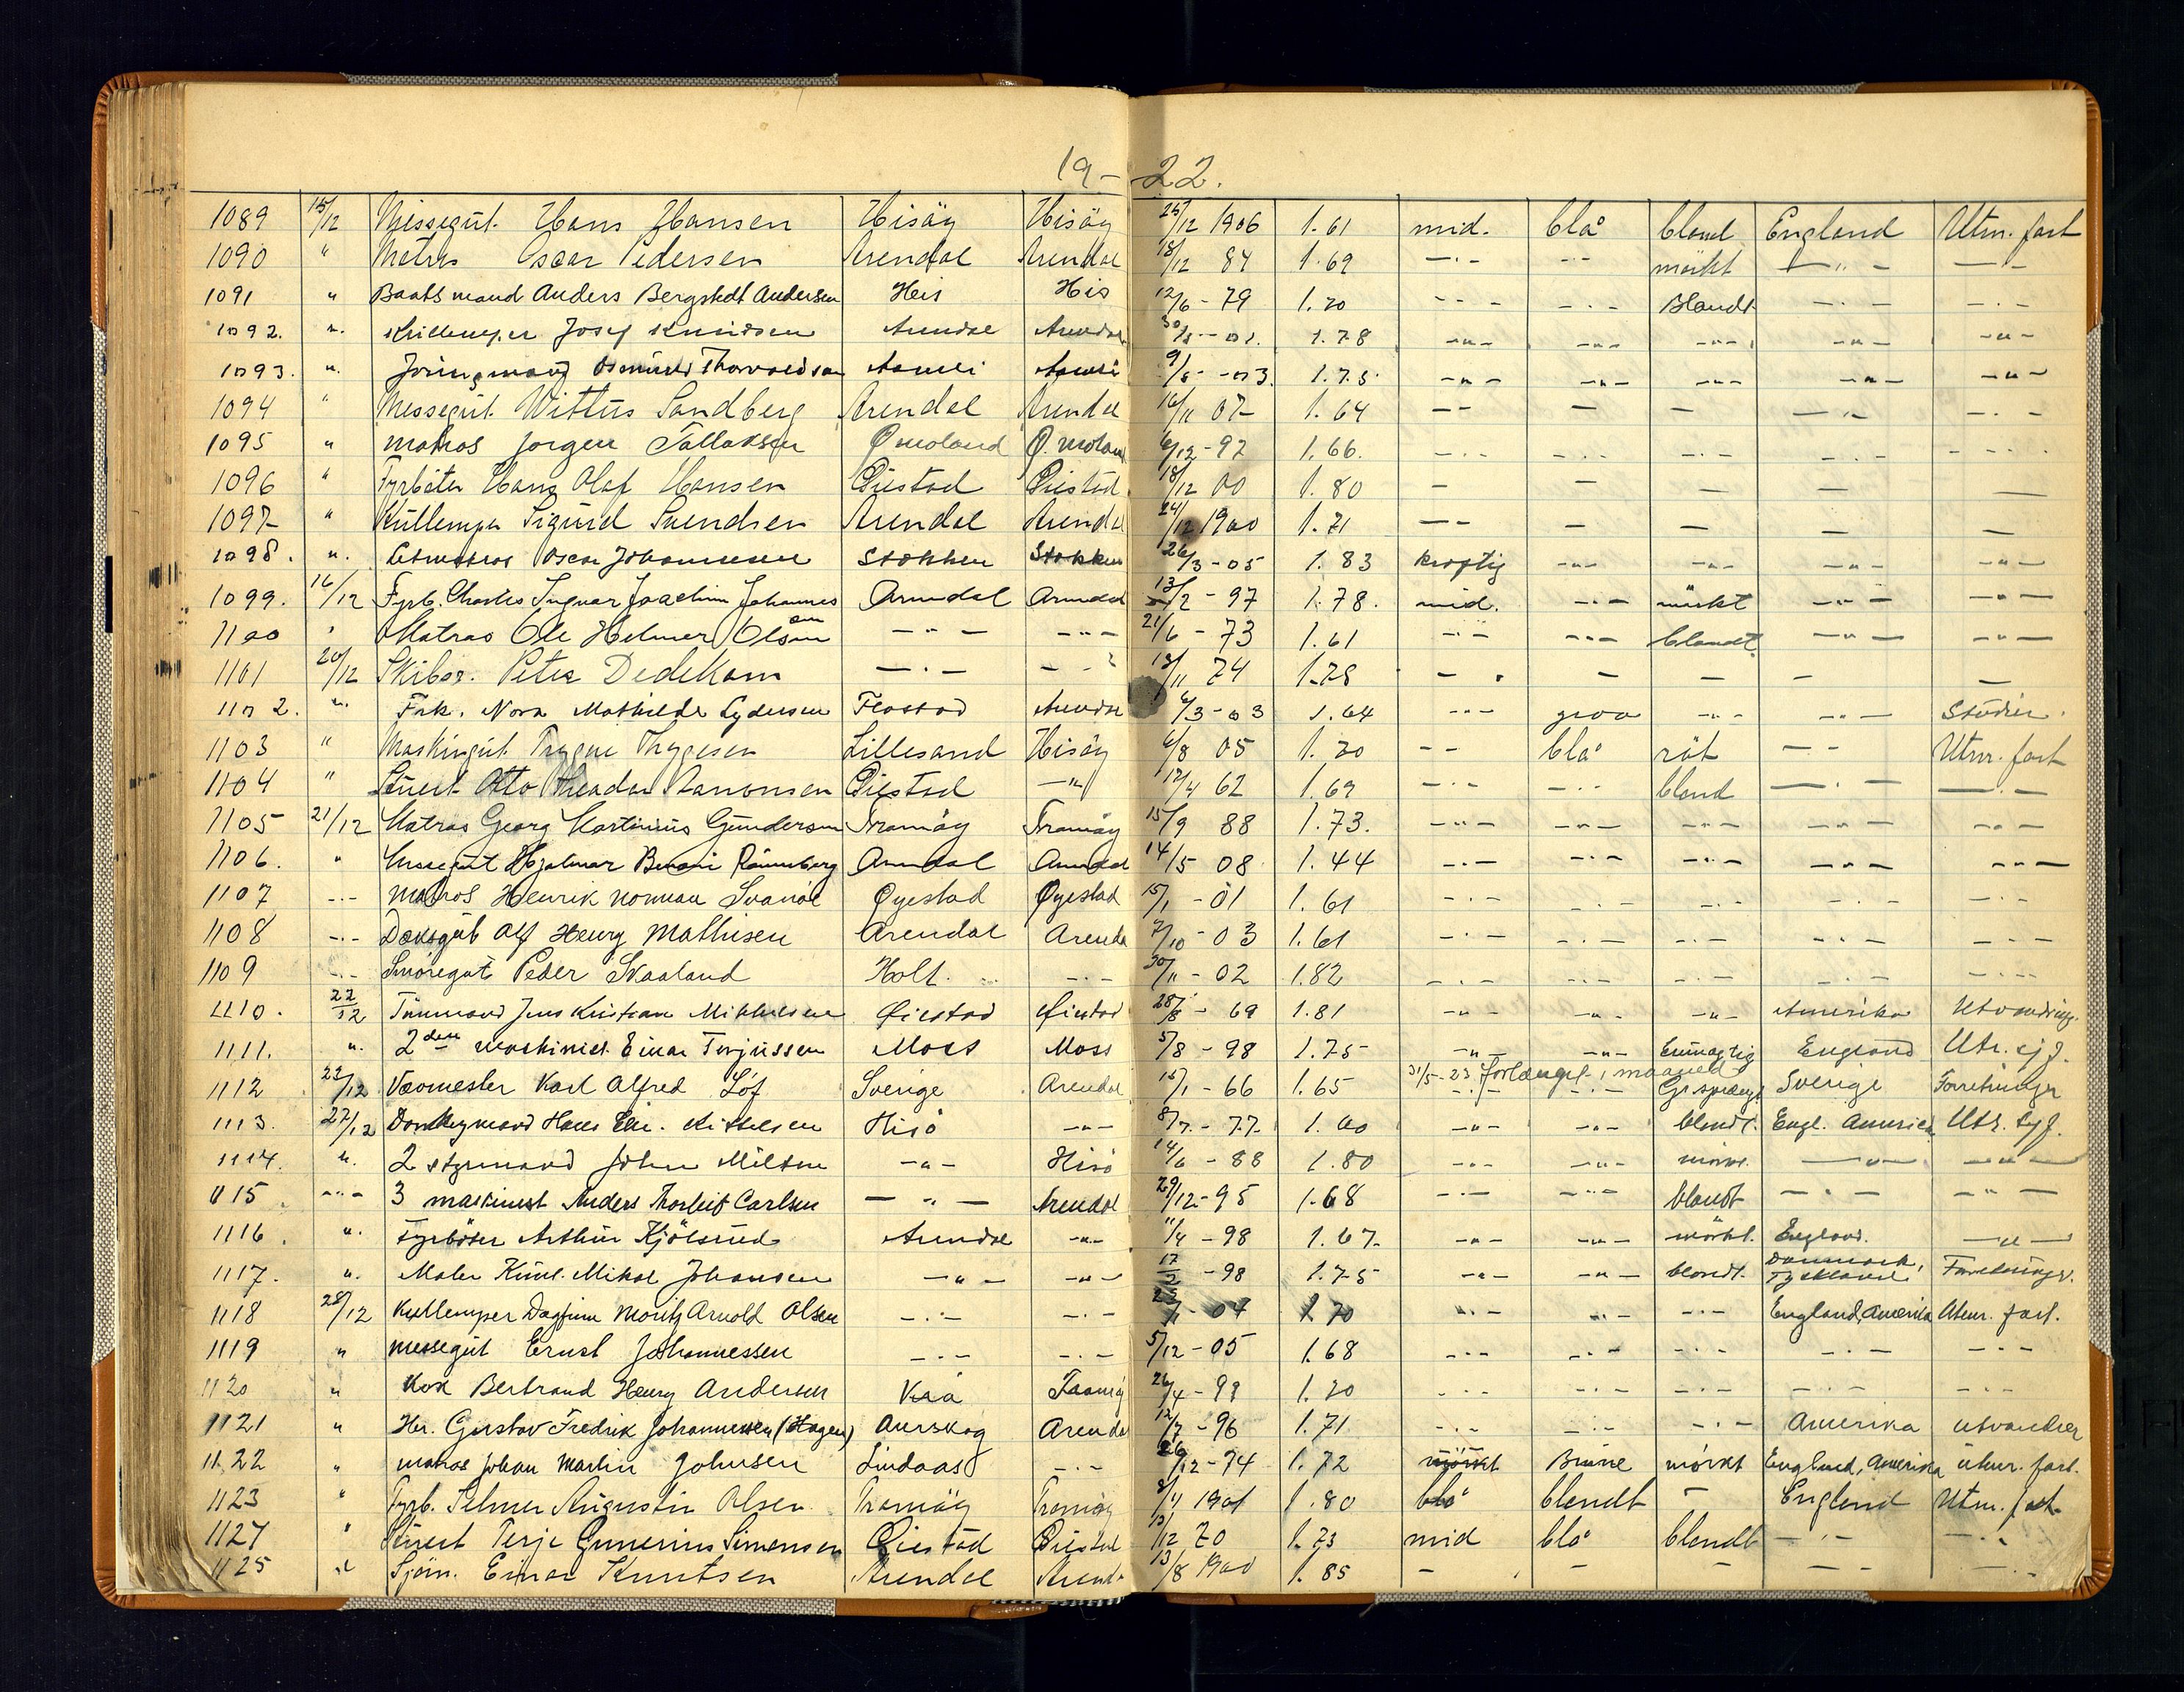 19-22.
1089 15/12 Messegut. Hans Hansen Hisöy Hisöy 25/12 1906 1.61 mid. blå blond England Utm. fart
1090 " Matros Oscar Pedersen Arendal Arendal 18/12 84 1.69 -.- -.- mörkt -"- -.-
1091 " Baatsmand Anders Bergstedt Andersen His His 12/6 - 79 1.70 -.- -.- Blondt -.- -.-
1092. ". Kullemper Josef Knudsen Arendal Arendal 30/8 - 01. 1.78 -"- -"- -"- -"- -"-
1093. ". Jungmand Osmund Thorvaldsen Aamli Aamli 9/5 - 03. 1.75 -"- -"- -"- -"- -"-
1094 " Messegut. Wittus Sandberg Arendal Arendal 16/11 07 1.64 -- - - -"- -.-
1095 " matros Jorgen Tallaksen Ö. moland Ö. moland 6/12 - 97 1.66. -.- -.- -.- -.- -.-
1096 " Fyrböter Hans Olaf Hansen Öiestad Öiestad 18/12 00 1.80 - - - - -
1097 " Kullemper Sigurd Svendsen Arendal Arendal 24/12 1900 1.71 -- - - - -
1098. ". Letmatros Oscar Johannesen Stokken Stokken 26/3 - 05 1.83 kraftig -"- -"- -"- -"-
1099. 16/12 Fyrb. Charles Ingvar Joachim Johannessen Arendal Arendal 13/2 - 97 1.78. mid. -"- mörkt -"- -"-
1100 " Matros Ole Helmer Olsen -"- -"- 21/6 - 73 1.61 -"- -"- blondt -"- -"-
1101 20/12 Skibsr. Peter Dedekam -.- -.- 18/11 74 1.78 - - - - -
1102. ". Frk. Nora Mathilde Lydersen Flostad Arendal 6/3 - 03 1.64 -"- graa -"- -"- Studier.
1103 " Maskingut. Trygve Thygesen Lillesand Hisöy 6/8 05 1.70 -- blå röt -- Utm. fart
1104 " Stuert Otto Theodor Aanonsen Öiestad -"- 12/4 62 1.69 -.- -.- blond -.- -.-
1105 21/12 Matros Georg Martinius Gundersen Tromöy Tromöy 15/9 88 1.73. -"- -"- -"- -"- -"-
1106. " Messegut Hjalmar Rönneberg Arendal Arendal 14/5 08 1.44 -.- -"- -"- -"- -"-
1107 -.- Matros Henrik Norman Svanöe Öyestad Öyestad 15/1 - 01 1.61 -.- -.- -.- -.- -.-
1108 -.- Dæksgut Alf Henry Mathisen Arendal Arendal 7/10 - 03 1.61 -.- -.- -.- -.- -.-
1109 -.- Smöregut Peder Skaaland Holt. -.- 30/11 - 02 1.82 -.- -.- -.- -.- -.-
1110. 22/12 Tömmermand Jens Kristian Mikkelsen Öiestad Öiestad 28/8 - 69 1.81 -"- -"- -"- Amerika Utvandring.
1111. ". 2den Maskinist. Einar Terjussen Moss Moss 5/8 - 98 1.75 -"- -"- England Utr. sjf.
31/5-23 forlænget, 1 maaned
1112 23/12 Værmester Karl Alfred Löf Sverige Arendal 15/1 - 66 1.65 -.- -.- Gr. sprængt Sverige Forretninger
1113. 27/12 Donkeymand Hans Kittelsen Hisö -"- 8/7. - 77. 1.60 -"- -"- blondt. Engl. America Utr. Sjf.
1114. ". 2 styrmand John Milton -"- Hisö 14/6 - 88 1.80 -"- -"- mörkt. -"- -"-
1115. -"- 3 maskinist Anders Thorleif Carlsen -"- Arendal 29/12 - 95 1.68 -.- -"- blondt -.- -"-
1116. ". Fyrböter Arthur Kjölsrud Arendal -"- 11/4 - 98 1.67. -"- -"- mörkt. England. -"-
1117. ". Maler Mikal Johansen -"- -"- 17/2 - 98 1.75 -"- -"- blondt. Danmark, Tyskland Forretninger.
1118 28/12 Kullemper Dagfinn Moritz Arnold Olsen -.- -.- 04 1.70 -.- -.- -.- England, Amerika Utenr. fart.
1119 " Messegut Ernst Johannessen -.- -.- 5/12 - 05 1.68 -.- -.- -.- -.- -.-
1120 " Kok Bertrand Henry Andersen Vraa Tromöy 26/4 - 99 1.70 -.- -.- -.- -.- -.-
1121 " Hr. Gustav Fredrik Johannessen (Hagen) Aurskog Arendal 12/7 - 96 1.71 -.- -.- -.- Amerika utvandrer
1122 " matros Johan Martin Johnsen Lindaas -.- 26/12 - 74 1.72 mörkt Brune mörkt England, Amerika utenr. fart.
1123 " Fyrb. Selmer Augustin Olsen Tromöy Tromöy 8/4 1901 1.80 blå blondt - England Utm. fart
1124 " Stuert Terje Gunerius Simonsen Öiestad Öiestad 13/12 70 1.73 mid blå blondt -"- -.-
1125 " Sjöm. Einar Knutsen Arendal Arendal 13/8 1900 1.85 - - - - -.-